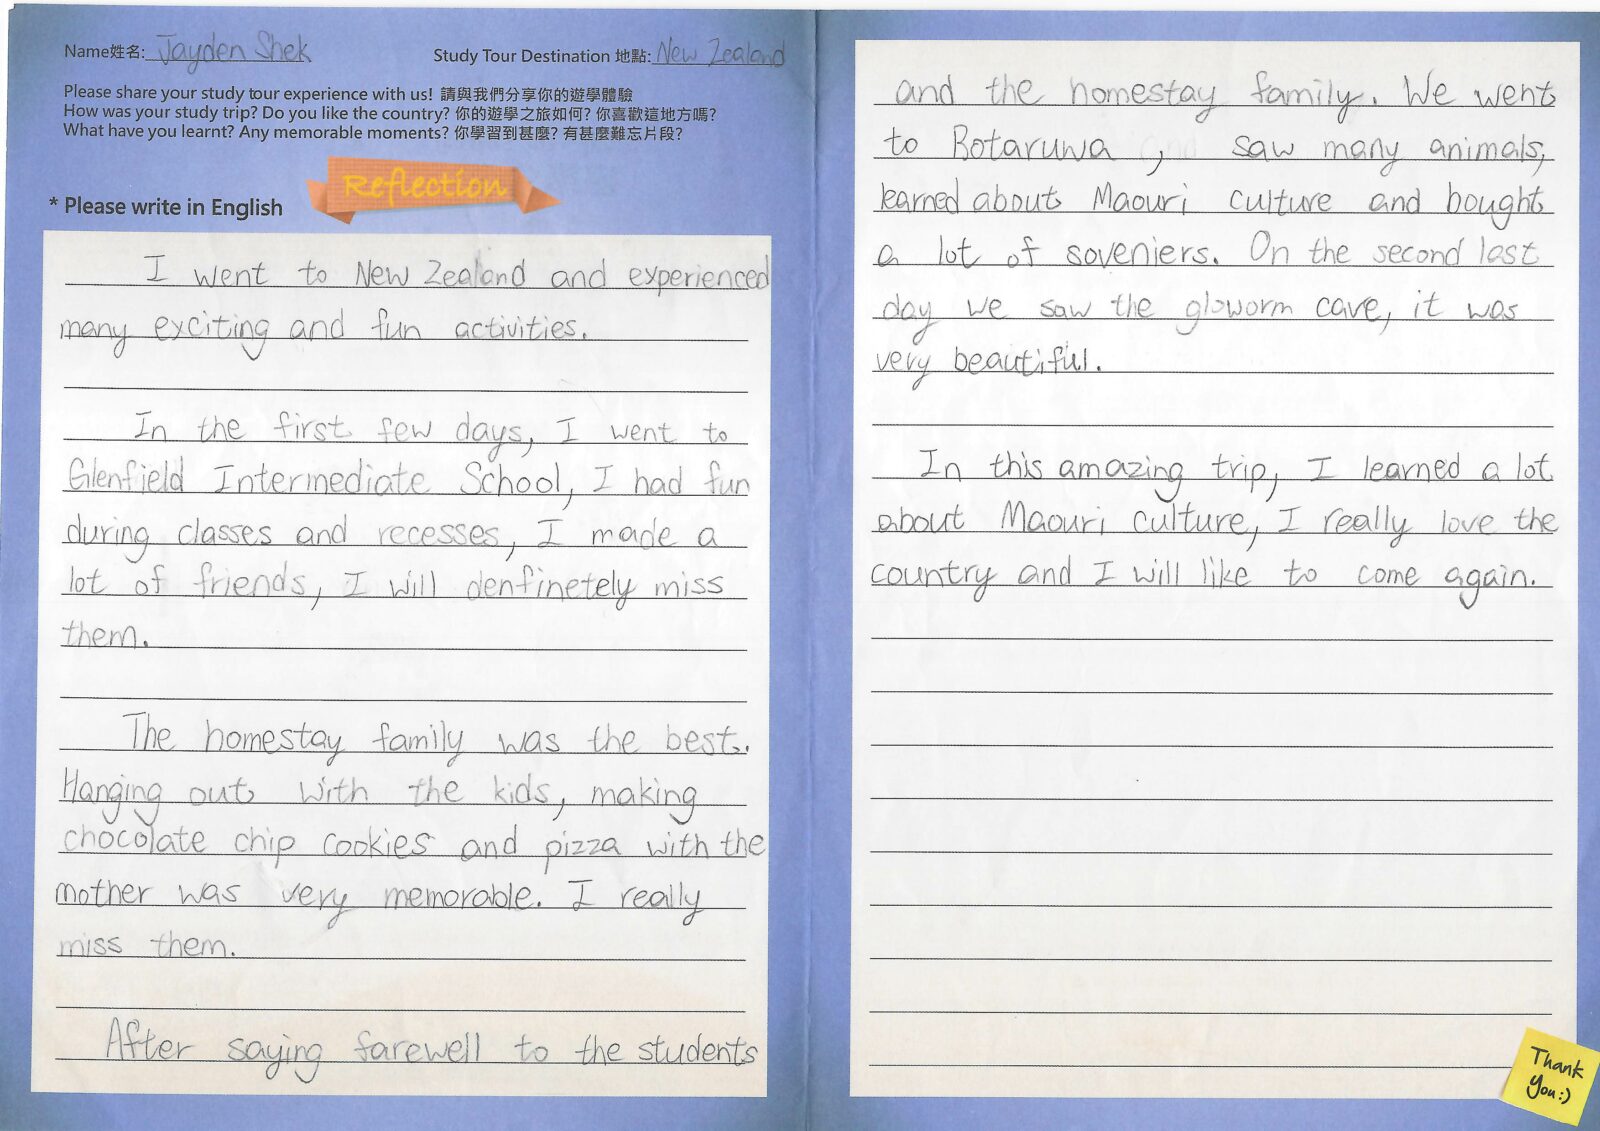 Name姓名: Jayden Shek
Study Tour Destination 地點: New Zealand
Please share your study tour experience with us! 請與我們分享你的遊學體驗
How was your study trip? Do you like the country? 你的遊學之旅如何? 你喜歡這地方嗎?
What have you learnt? Any memorable moments? 你學習到甚麼? 有甚麼難忘片段?
Reflection
* Please write in English
I went to New Zealand and experienced
many exciting and fun activities.
In the first few days, I went to
Glenfield Intermediate School, I had fun
during classes and recesses, I made a
lot of friends, I will denfinetely miss
them.
The homestay family was the best.
Hanging out with the kids, making
chocolate chip cookies and pizza with the
mother was very memorable. I really
miss them.
After saying farewell to the students
and the homestay family. We went
to Rotaruwa , saw many animals,
learned about Maouri culture and bought
a lot of soveniers. On the second last
day we saw the gloworm cave, it was
very beautiful.
In this amazing trip, I learned a lot
about Maouri culture, I really love the
country and I will like to come again.
Thank
You:)